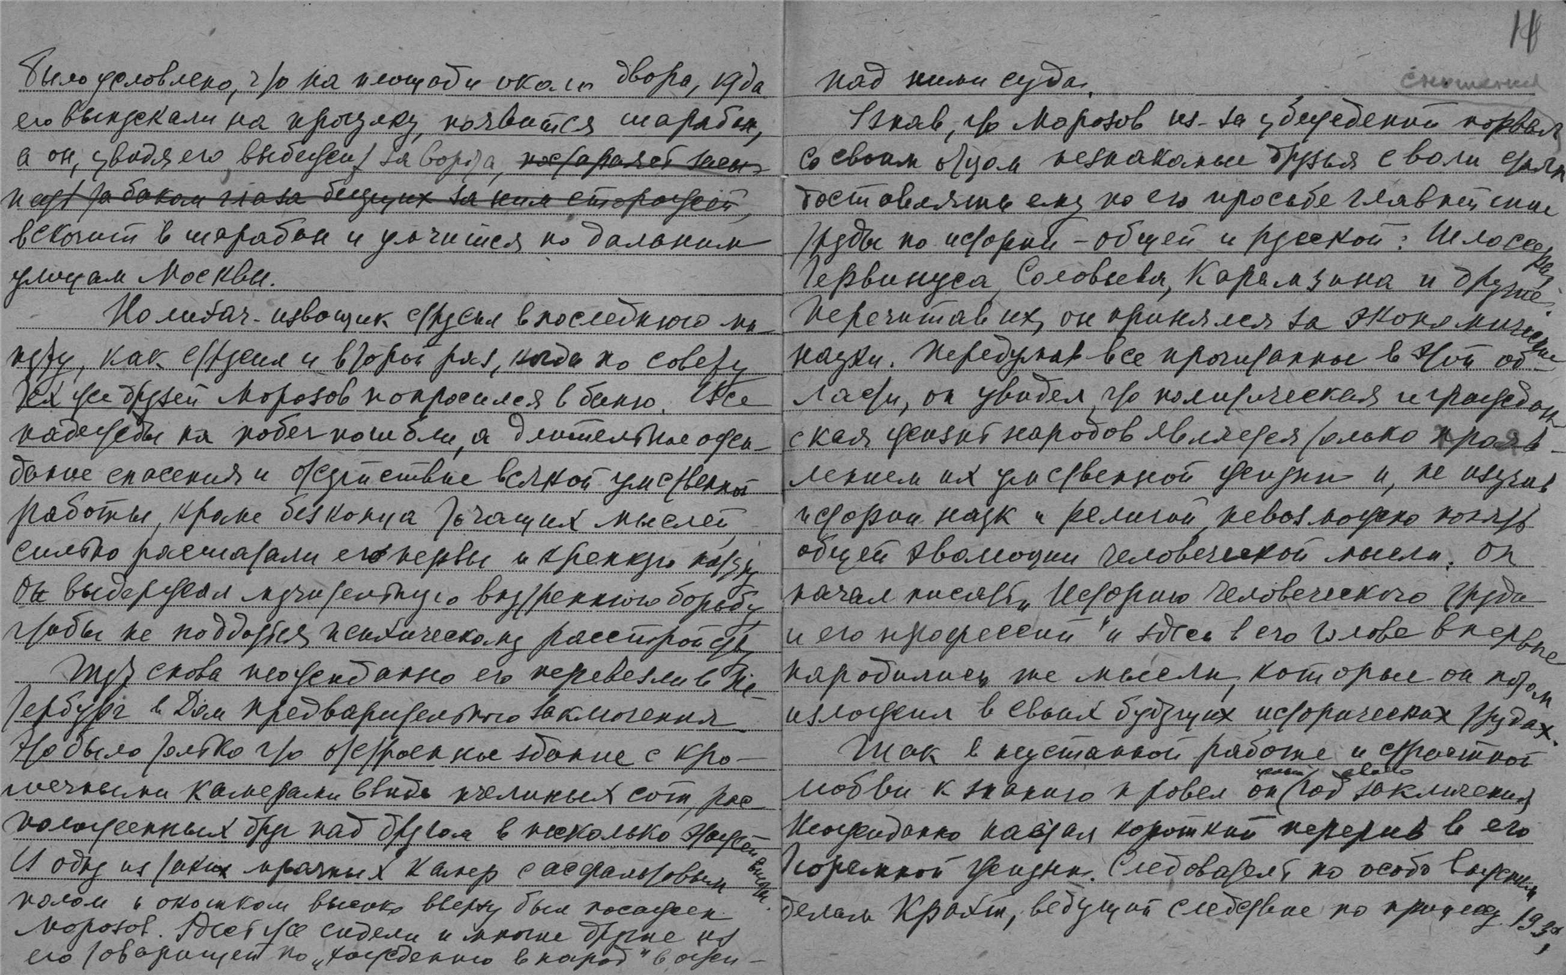 было условлено, что на площади около двора, куда
его выпускали на прогулку, появится шарабан,
а он, увидя его, выбежит за ворота,
вскочит в шарабан и умчится по дальним
улицам Москвы.
Но лихач-извощик струсил в последнюю ми-
нуту, как струсил и второй раз, когда по совету
тех же друзей Морозов попросился в баню. Все
надежды на побег погибли, а длительное ожи-
дание спасения и отсутствие всякой умственной
работы, кроме без конца мыслей,
сильно расшатали его нервы и крепкую натуру
Он выдержал мучительную внутреннюю борьбу
чтобы не поддаться психическому расстройству
Тут снова неожиданно его перевезли в Пе-
тербург в Дом предварительного заключения
Это было только что отстроенное здание с кро-
шечными камерами в виде пчелиных сот, рас-
положенных друг над другом в несколько этажей
И в одну из таких мрачных камер с асфальтовым
полом и окошком высоко вверху был посажен
Морозов. Здесь уже сидели и многие другие из
его товарищей по „хождению в народ" в ожи-
18
над ними суда.
Узнав, что Морозов из-за убеждений порвал
со своим отцом незнакомые друзья с воли стали
доставлять ему по его просьбе главнейшие
труды по истории - общей и русской: Шлоссера,
Гервинуса, Соловьева, Карамзина и других.
Перечитав их, он принялся за экономические
науки. Передумав все прочитанное в этой об-
ласти, он увидел, что политическая и граждан-
ская жизнь народов является только прояв-
лением их умственной жизни и, не изучив
истории наук и религий, невозможно понять
общей эволюции человеческой мысли. Он
начал писать „Историю человеческого труда
и его профессий" и здесь в его голове впервые
народились те мысли, которые он потом
изложил в своих будущих исторических трудах.
Так в неустанной работе и страстной
любви к знанию провел он год заключения
Неожиданно настал короткий перерыв в его
тюремной жизни. Следователь по особо важным
делам Крахт, ведущий следствие по процессу 193х,